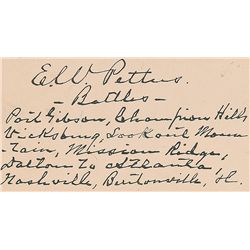 E.W. Pettus.
- Battles -
Port Gibson, Champion Hills
Vicksburg, Lookout Moun
-tain, Mission Ridge,
Dalton to Atlanta
Nashville, Bentonville,